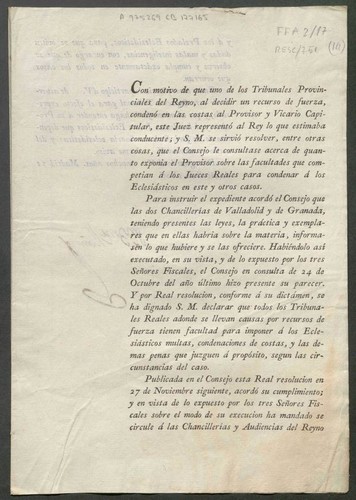 FFA 2/17
(10)
Con motivo de que uno de los Tribunales Provin-
ciales del Reyno, al decidir un recurso de fuerza,
condenó en las costas al Provisor y Vicario Capi-
tular, este Juez representó al Rey lo que estimaba
conducente; y S. M. se sirvió resolver, entre otras
cosas, que el Consejo le consultase acerca de quan-
to exponia el Provisor sobre las facultades que com-
petian á los Jueces Reales para condenar á los
Eclesiásticos en este y otros casos.
Para instruir el expediente acordó el Consejo que
las dos Chancillerías de Valladolid y de Granada,
teniendo presentes las leyes, la práctica y exempla-
res que en ellas habria sobre la materia, informa-
sen lo que hubiere y se las ofreciere. Habiéndolo asi
executado, en su vista, y de lo expuesto por los tres
Señores Fiscales, el Consejo en consulta de 24 de
Octubre del año último hizo presente su parecer.
Y por Real resolucion, conforme á su dictámen, se
ha dignado S. M. declarar que todos los Tribuna-
les Reales adonde se llevan causas por recursos de
fuerza tienen facultad para imponer á los Ecle-
siásticos multas, condenaciones de costas, y las de-
mas penas que juzguen á propósito, segun las cir-
cunstancias del caso.
Publicada en el Consejo esta Real resolucion en
27 de Noviembre siguiente, acordó su cumplimiento;
y en vista de lo expuesto por los tres Señores Fis-
cales sobre el modo de su execucion ha mandado se
circule á las Chancillerías y Audiencias del Reyno